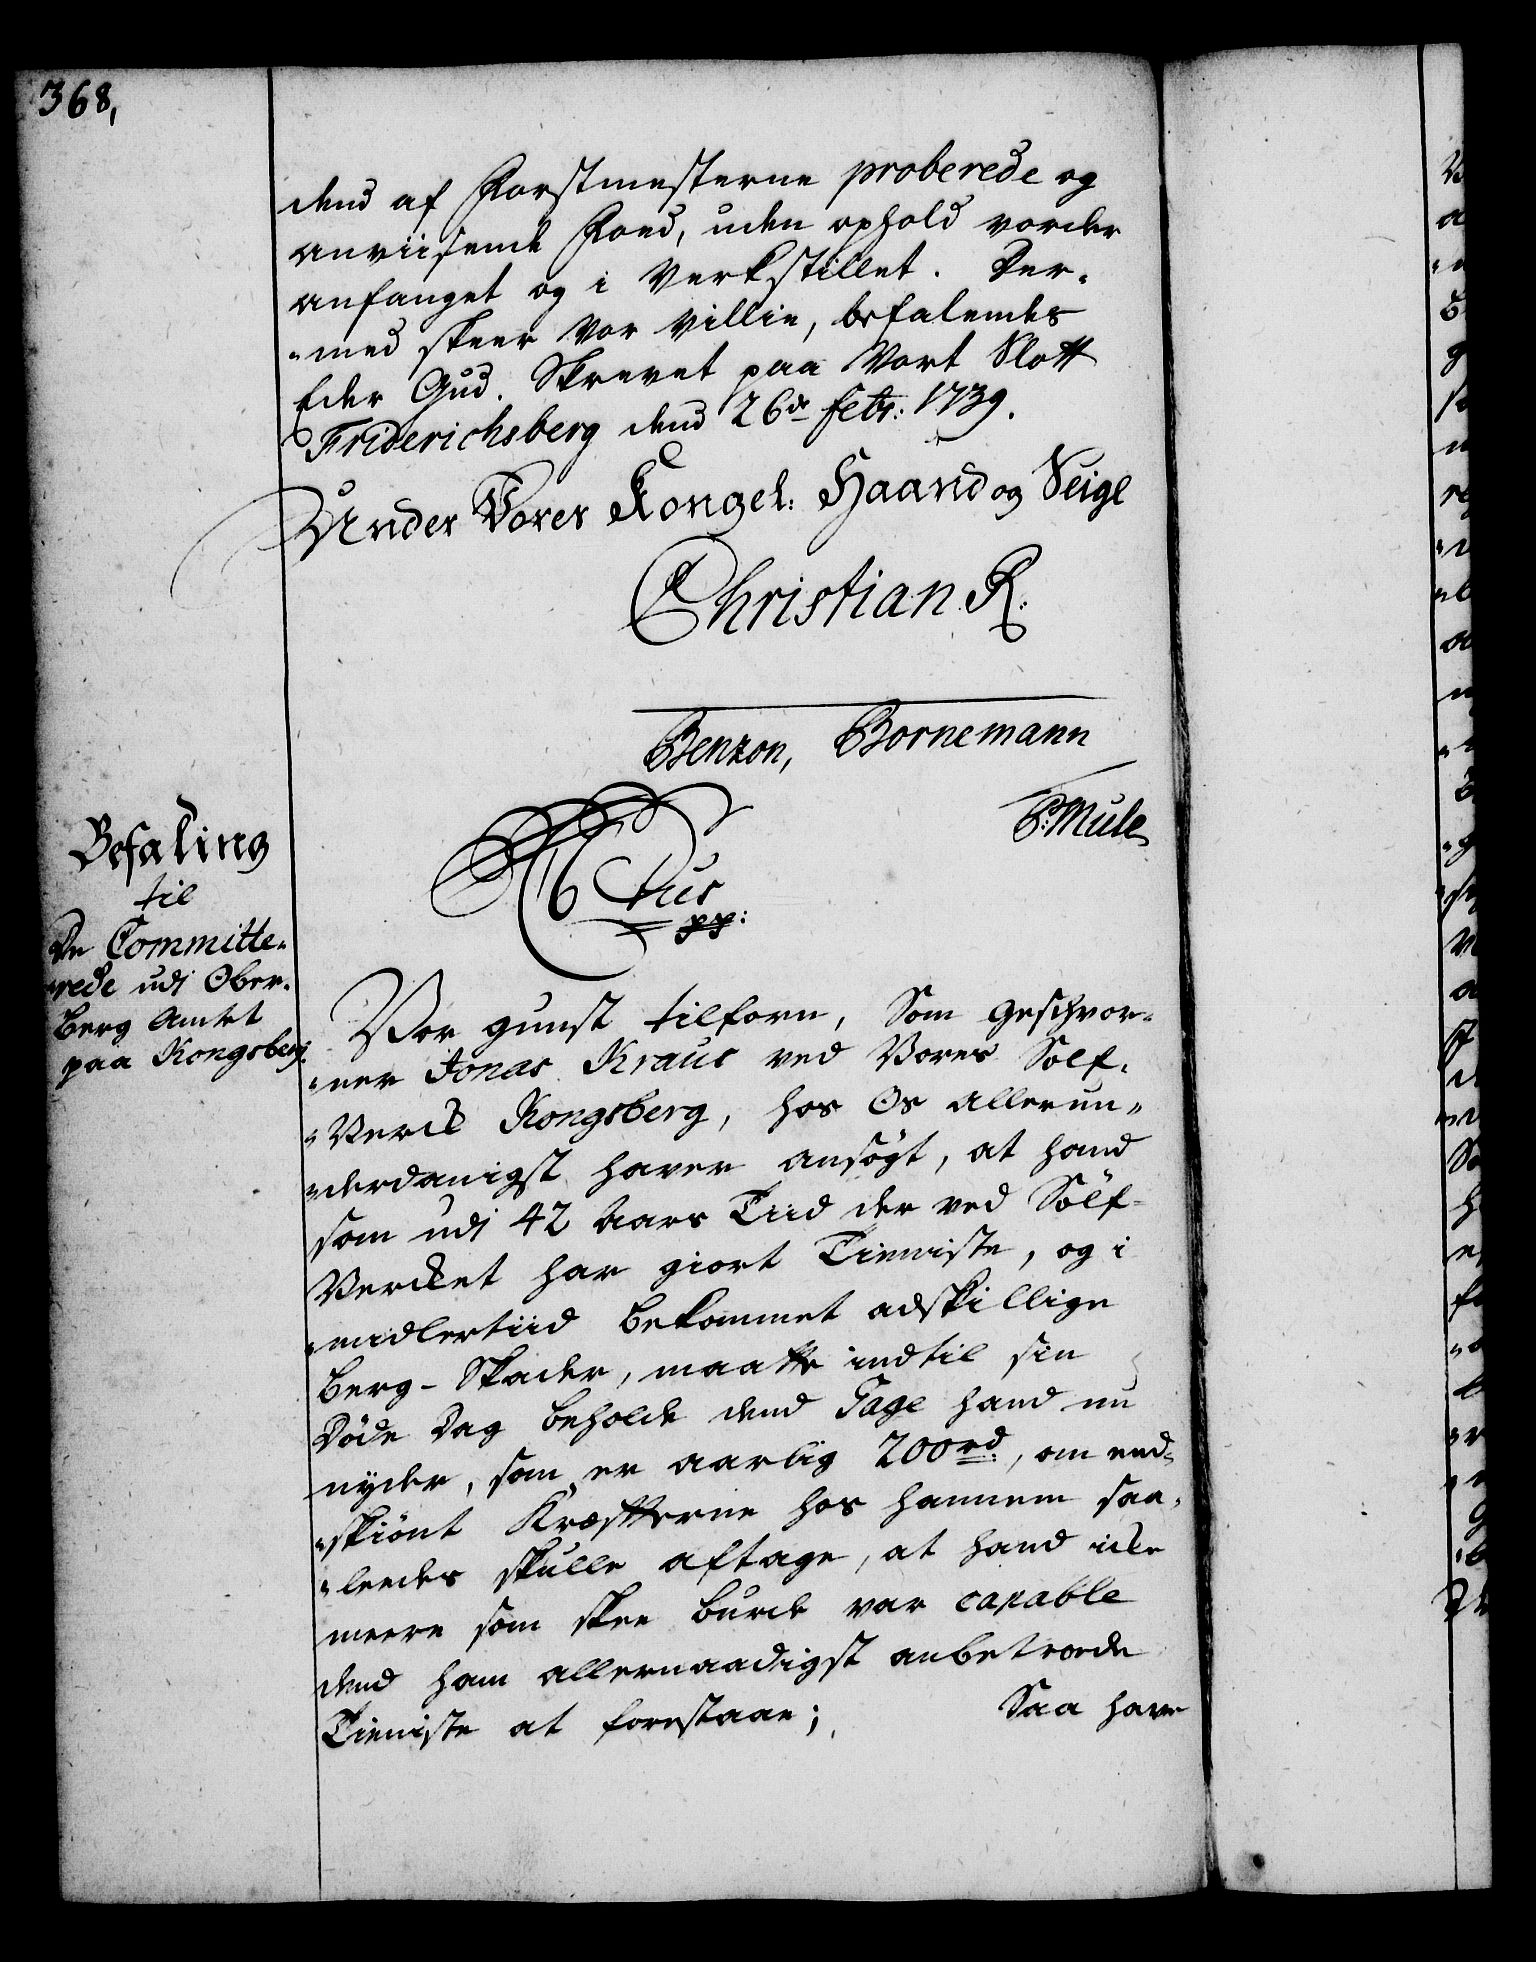 368,
dend af Forstmesterne proberede og
anviisende Foed, uden ophold vorder
anfanget og i Verkstillet. Der-
-med skeer Vor Villie, befalendes
Eder Gud. Skrevet paa Vort Slott
Friderichsberg dend 26de febr: 1739.
Under Vores Kongel: Haand og Seigl
Christian R.
Benzon, Bornemann
P: Mule
Befaling
til
De Committe-
-rede udi Ober-
berg Amtet
paa Kongsberg.
C6tus
pp:
Vor gunst tilforn, Som Geschwor-
-ner Jonas Kraus ved Vores Sølf-
-Verck Kongsberg, hos Os allerun-
-derdanigst haver ansøgt, at hand
som udi 42 Aars Tiid der ved Sølf-
Vercket har giort Tieniste, og i
-midlertiid bekommet adskillige
Berg-Skader, maatte indtil sin
Døde Dag beholde dend Gage hand nu
nyder, som er aarlig 200rd, om end-
-skiønt Kræffterne hos hannem saa-
-leedes skulle aftage, at hand icke
meere som skee burde var capable
dend ham allernaadigst anbetroede
Tieniste at forestaae;
Saa have